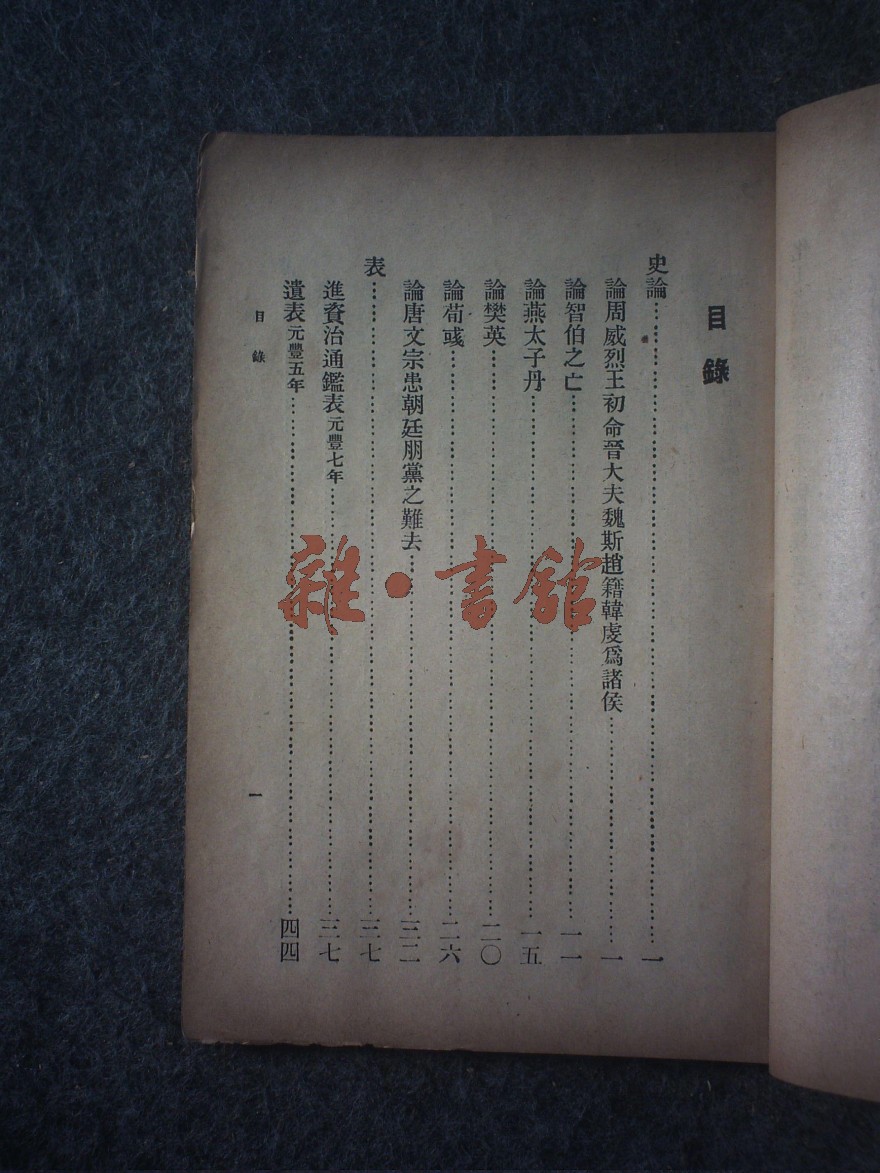 目錄
史論……一
論周威烈王初命晉大夫魏斯趙籍韓虔爲諸侯……一
論智伯之亡……一一
論燕太子丹……一五
論樊英……二〇
論荀彧……二六
論唐文宗患朝廷朋黨之難去……三二
表……三七
進資治通鑑表元豐七年……三七
遺表元豐五年……四四
目錄
一
雜·書館